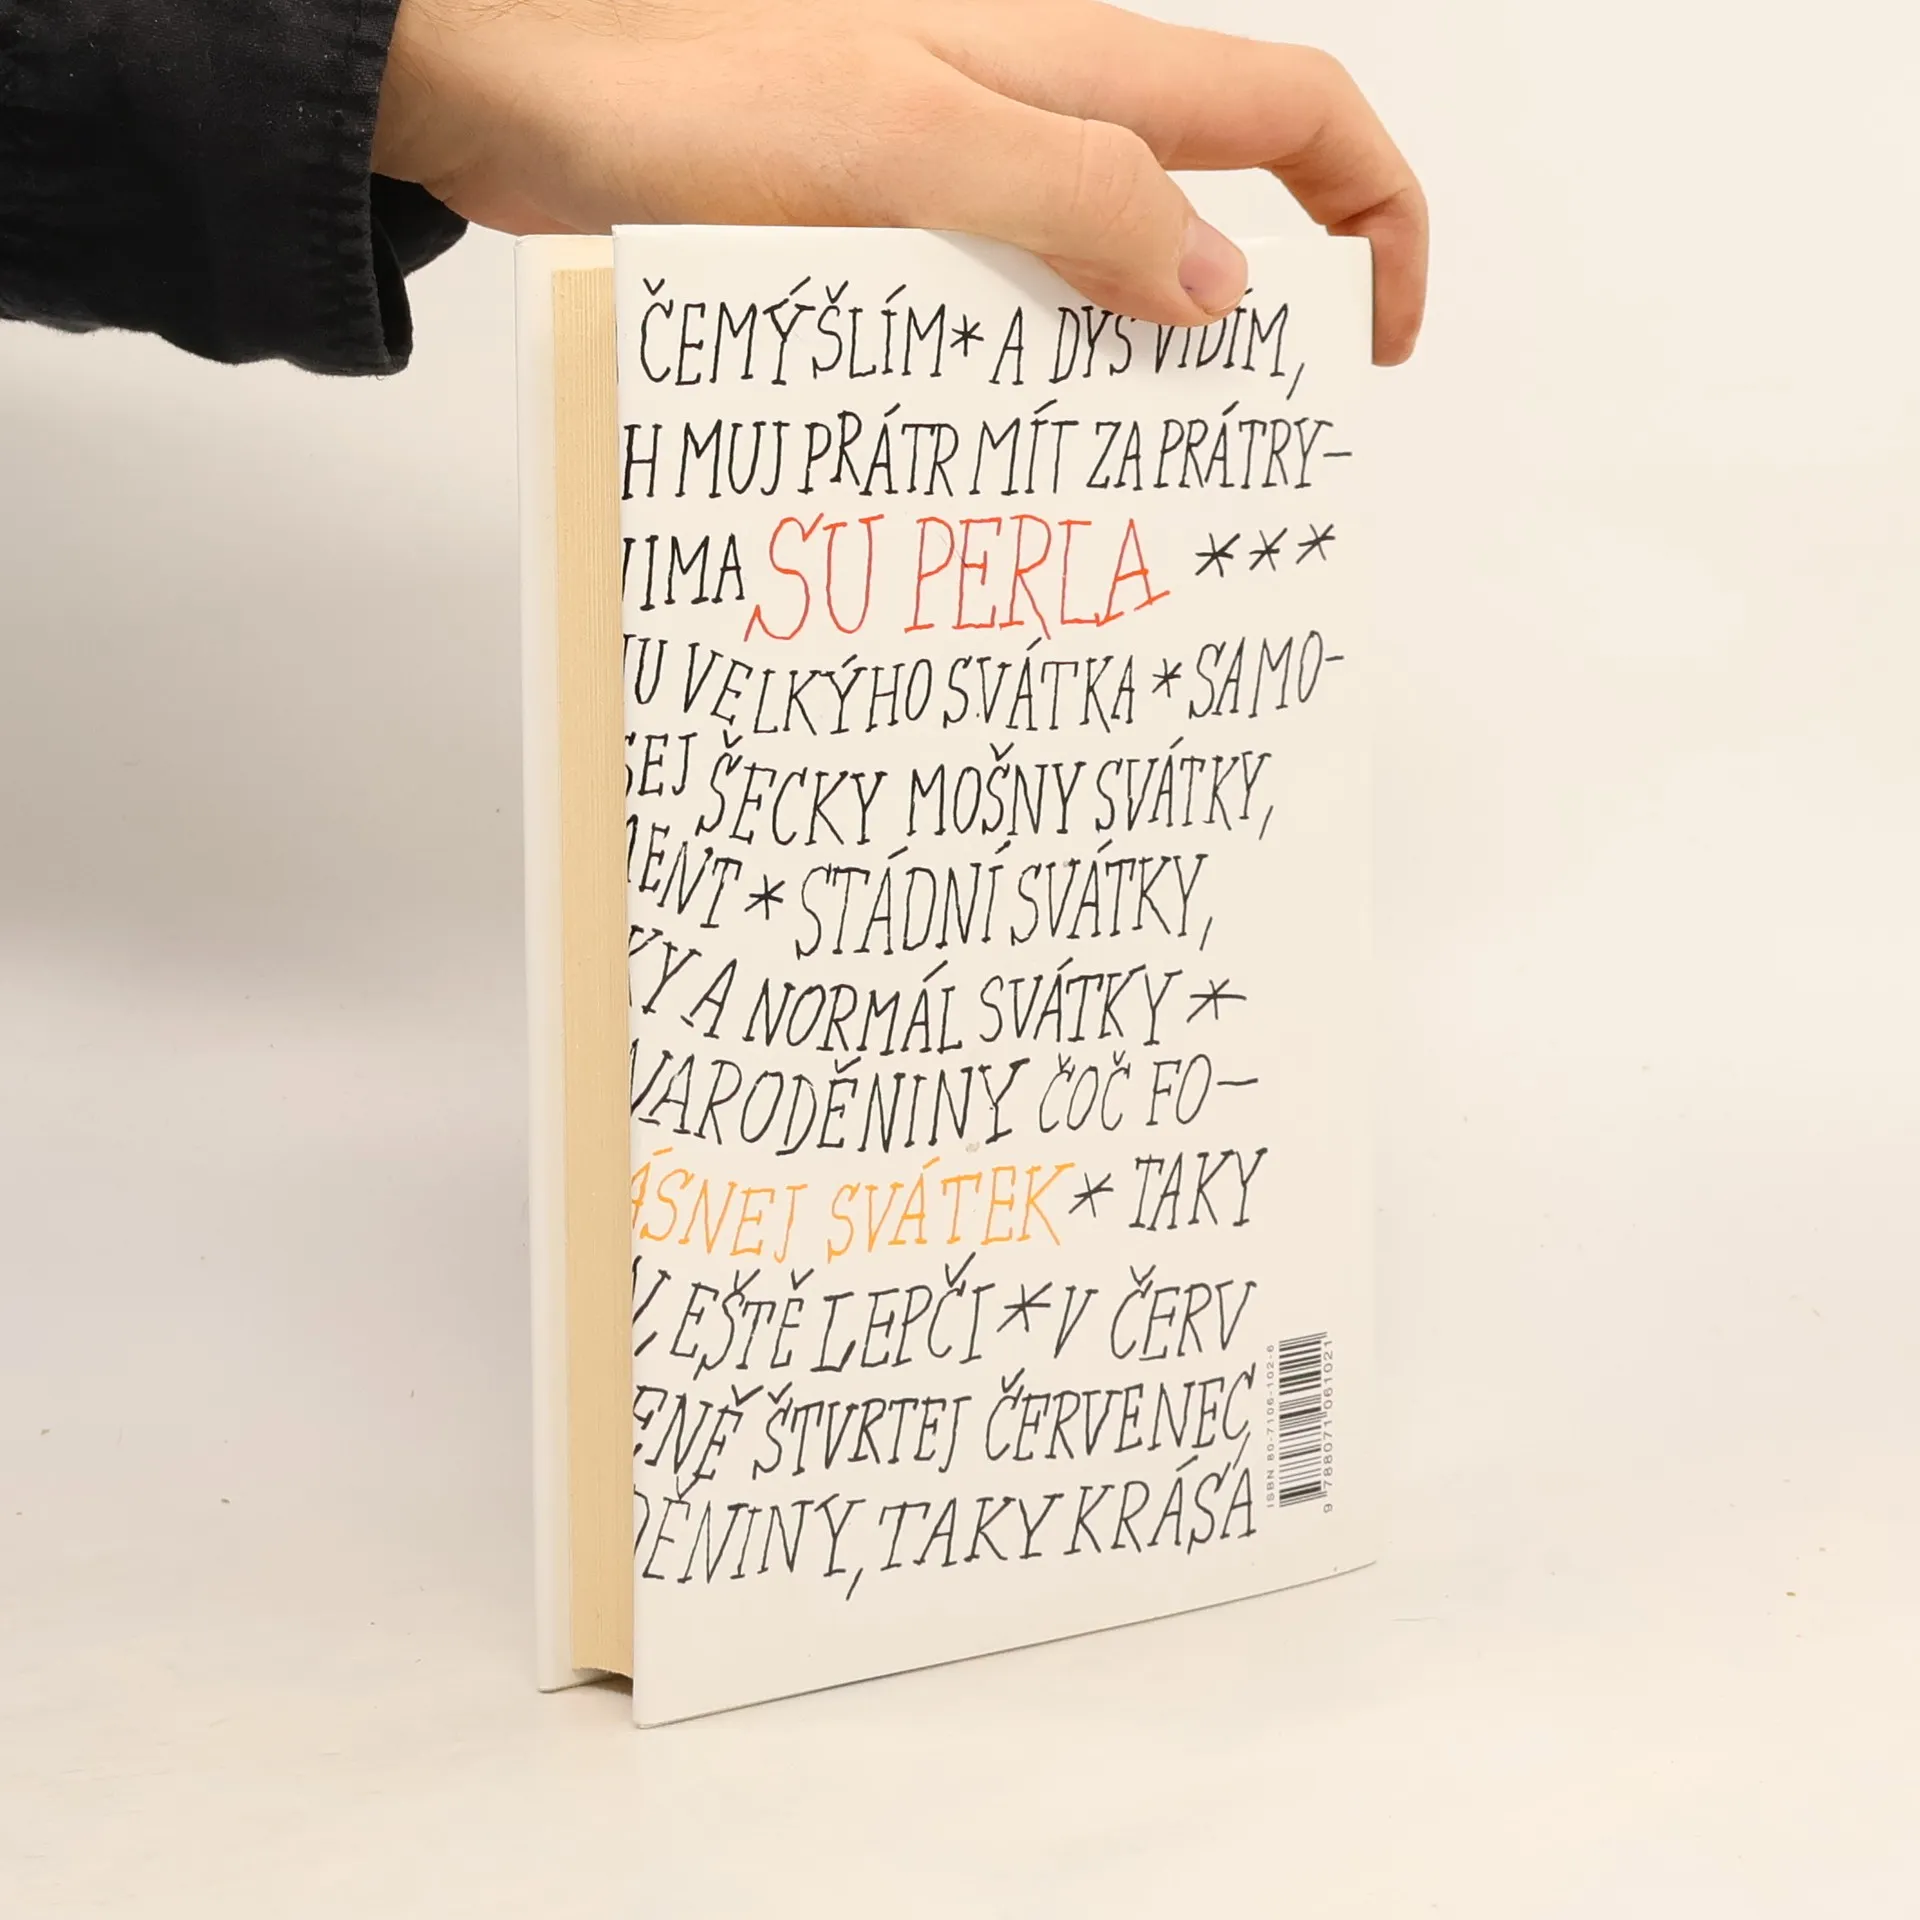 ČEMÝŠLÍM * A DYŠ VIDÍM,
H MUJ PRÁTR MÍT ZA PRÁTRY-
IMA SU PERLA ***
U VELKÝHO SVÁTKA * SAMO-
SEJ ŠECKY MOŠNY SVÁTKY,
ENT * STÁDNÍ SVÁTKY,
KY A NORMÁL SVÁTKY *
NARODĚNINY ČOČ FO-
ÁSNEJ SVÁTEK * TAKY
EŠTĚ LEPČI * V ČERV
ENĚ ŠTVRTEJ ČERVENEC,
DĚNINY, TAKY KRÁSÁ
ISBN 80-7106-102-6
9 788071 061021